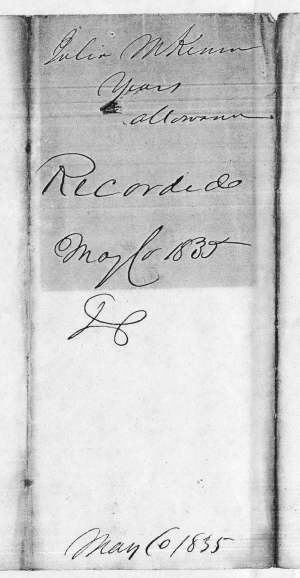 Julia McKenn
Years
allowance
Recorded
May Co 1835
May Co 1835